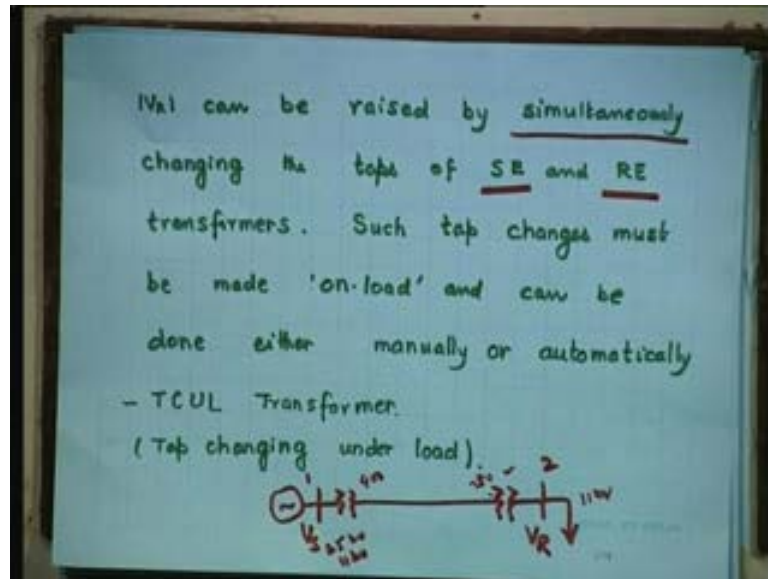 |VR| can be raised by simultaneously
changing the taps of SE and RE
transformers. Such tap changes must
be made 'on-load' and can be
done either manually or automatically
- TCUL Transformer.
(Tap changing under load).
1
2
VR